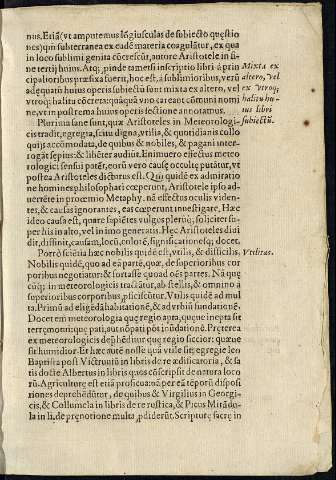 nus. Etiã (vt amputemus lõgiusculas de subiecto quęstio
nes) quin subterranea ex eadẽ materia coagulãtur, ex qua
in loco sublimi genita cõcrescũt, autore Aristotele in fi-
ne tertij huius. Atq; pinde tametsi inscriptio libri à prin
cipalioribus præfixa fuerit, hoc est, à sublimioribus, verũ
adequatũ huius operis subiectũ sunt mixta ex altero, vel
vtroq; halitu cõcreta: quãquã vno careant cõmuni nomi
ne, vt in postremo huius operis sectione annotamus.
Mixta ex
altero, vel
ex vtroq;
halitu hu-
ius libri
subiectũ.
Plurima sane sunt, quæ Aristoteles in Meteorologi-
cis tradit, egregia, scitu digna, vtilia, & quotidianis collo
quijs accõmodata, de quibus & nobiles, & pagani inter-
rogãt sepius: & libẽter audiũt. Enimuero effectus meteo
rologici sensui patẽt, eorũ vero causę occulte putãtur, vt
postea Aristoteles dicturus est. Qui quidẽ ex admiratio
ne homines philosophari cœperunt, Aristotele ipso ad-
uerrẽte in proœmio Metaphy. nã effectus oculis viden-
tes, & causas ignorantes, eas cœperunt inuestigare. Hæc
ideo causa est, quare sapiẽtes vulgus plerũq; soliciter su-
per his in alto, vel in imo genitis. Hęc Aristoteles diui
dit, distinit, causam, locũ, colorẽ, significationesq; docet.
Porrò sciẽtia hæc nobilis quidẽ est, vtilis, & difficilis.
Vtilitas.
Nobilis quidẽ, quo ad eã partẽ, quæ, de superioribus cor
poribus negotiatur: & fortasse quoad oẽs partes. Nã quę
cũq; in meteorologicis tractãtur, ab stellis, & omnino à
superioribus corporibus, pficiscũtur. Vtilis quidẽ ad mul
ta. Primũ ad eligẽdã habitationẽ, & ad vrbiũ fundationẽ.
Docet em̃ meteorologia quę regio apta, quęque inepta sit
terręmotui: que pati, aut nõ pati põt inũdationẽ. Pręterea
ex meteorologicis dep̃hẽditur quę regio siccior: quæ ne
sit humidior. Et hæc autẽ nosse quã vtile sit, egregie Leo
Baptista post Victruuiũ in libris de re ædificatoria, & sa
tis docte Albertus in libris quos cõscripsit de natura loco
rũ. Agriculturę est etiã proficua: nã per eã tẽporũ disposi
tiones deprehẽdũtur, de quibus & Virgilius in Georgi-
cis, & Collumela in libris de re rustica, & Picus Mirãdu-
la in li. de pręnotione multa, pdiderũt. Scripturę sacrę in